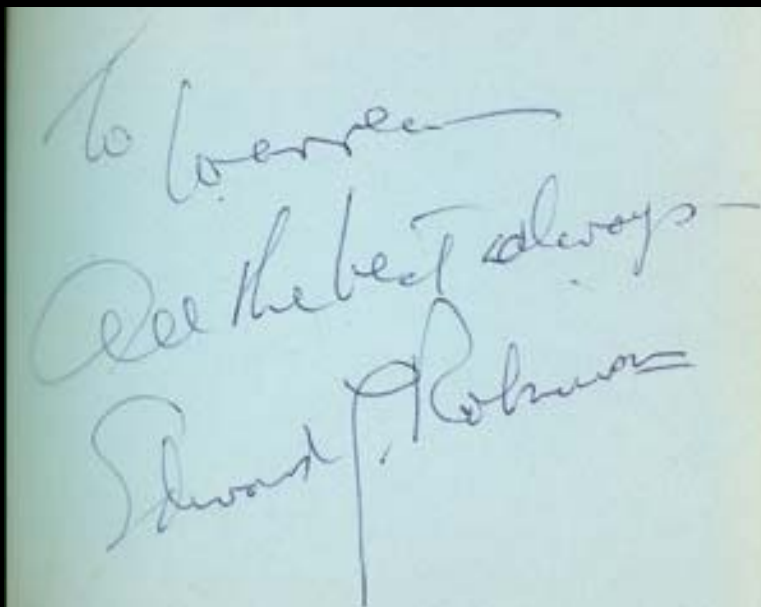 To Warren
All the best always –
Edward G. Robinson